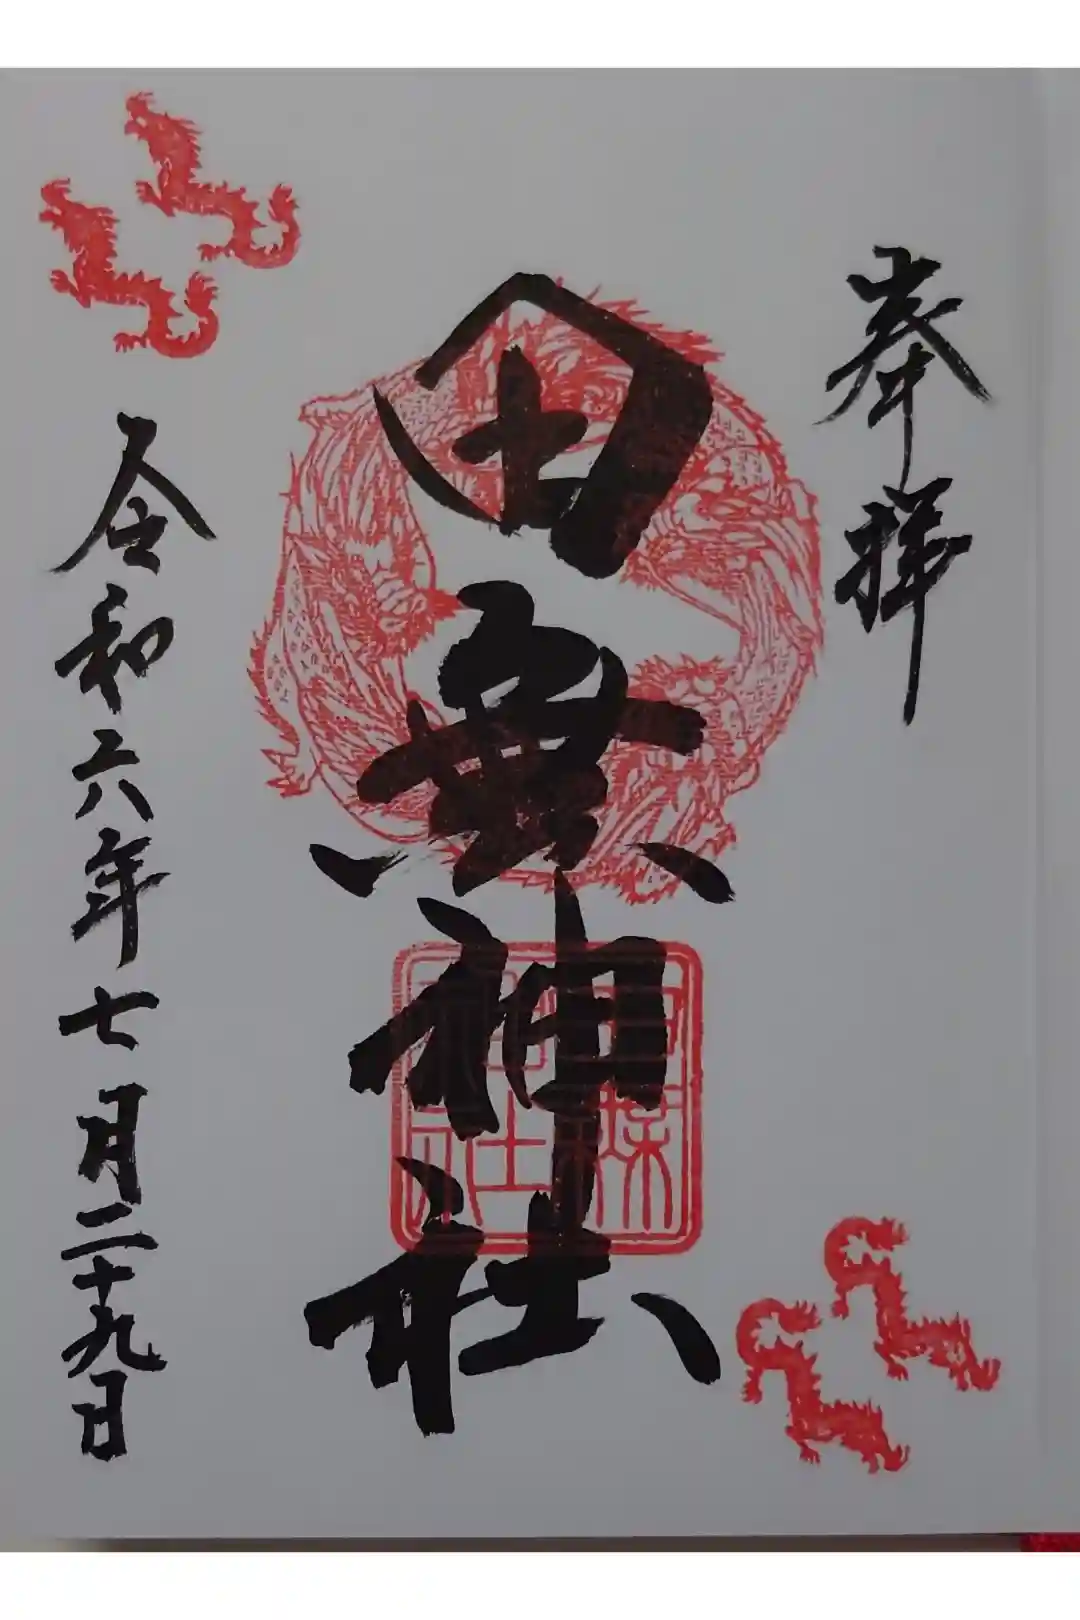 奉拝
田無神社
令和六年七月二十九日